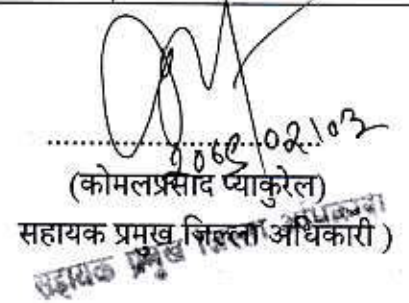 (कोमलप्रसाद प्याकुरेल)
सहायक प्रमुख जिल्ला अधिकारी )
सहायक प्रमुख जिल्ला अधिकारी